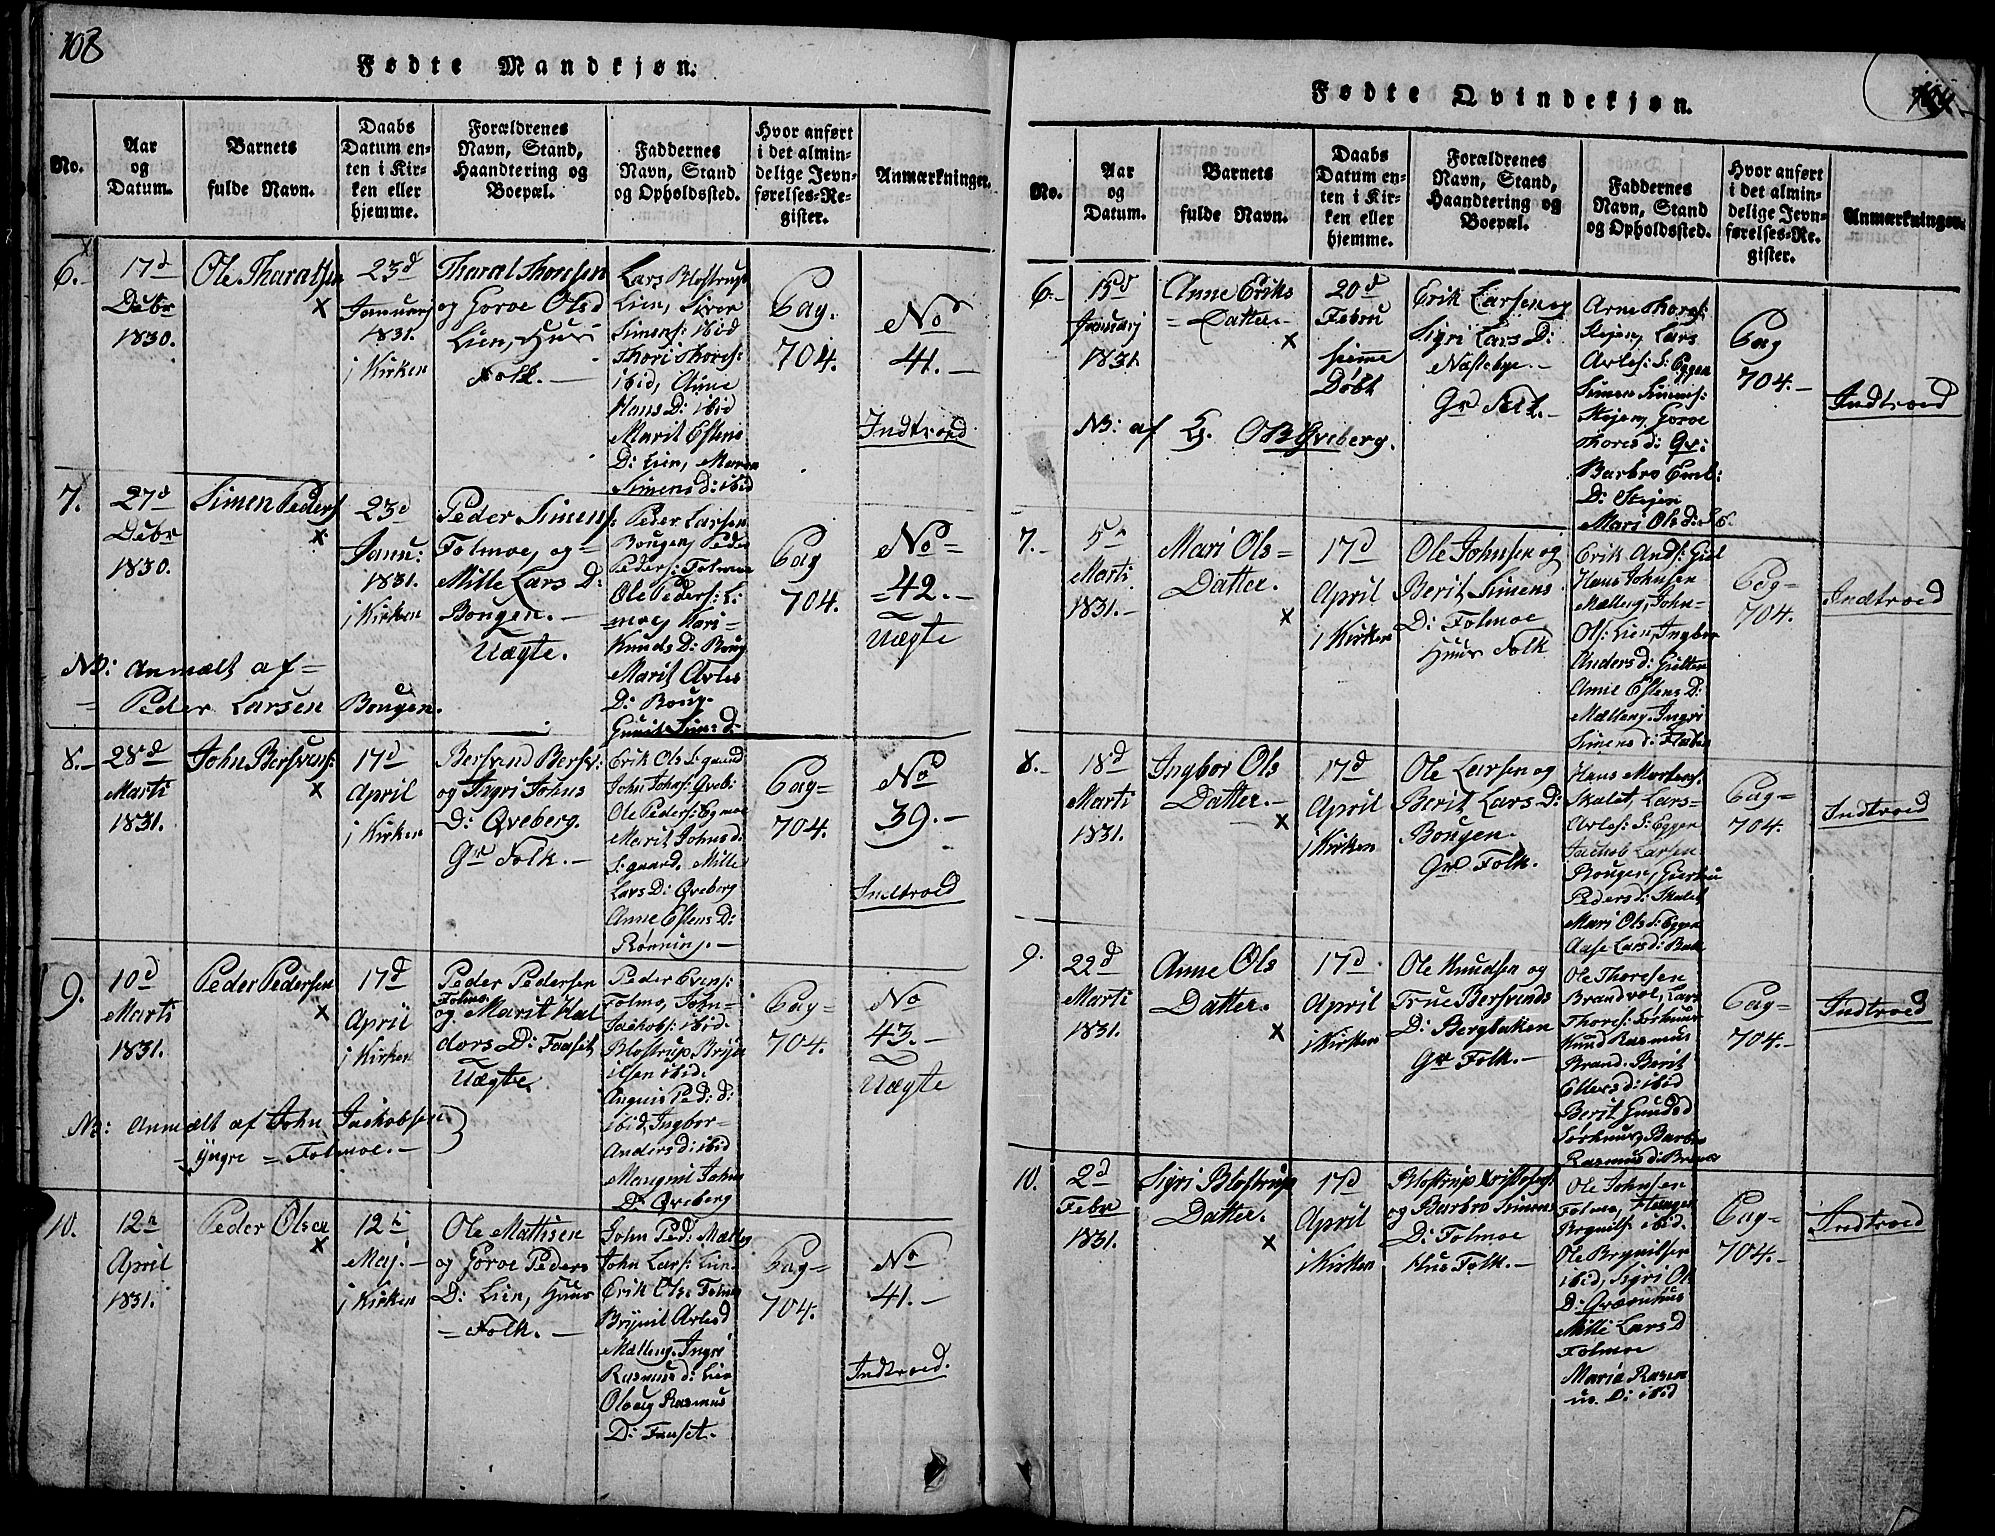 108
Fødte Mandkjøn.
No.
Aar
og
Datum.
Barnets
fulde Navn.
Daabs
Datum en-
ten i Kir-
ken eller
hjemme.
Forældrenes
Navn, Stand,
Haandtering og
Boepæl.
Faddernes
Navn, Stand
og Opholdssted.
Hvor anført
i det almin-
delige Jevn-
førelses-Re-
gister.
Anmærkninger.
6.-
17d
Debr
1830.
Ole Tharalsen
x
23d
Januarj
1831.
i Kirken
Tharal Thoresen
og Goroe Olsd
Lien, Huus
Folk.-
Lars Blostrups
Lien, Siver
Simens: ibid
Thori Thores:
ibid, Anne
Hans D: ibid
Marit Estens
D: Lien, Maren
Simens d: ibid
Pag.
704.
No
41.-
Indtroed
7.
27d
Debr
1830.
Simen Peders:
x
23d
Janu:
1831.
i Kirken
Peder Simens:
Folmoe, og=
Mille Lars D:
Bougen.-
Uægte.
Peder Larsen
Bougen, Peder
Peders: Folmoe
Ole Peders: L:
=moe, Kari=
Knuds D: Boug
Marit Arles
D: Boug-
Gunil Sim: d:
Pag
704.
No=
=42.-
Uægte
NB: Anmælt af=
= Peder Larsen Bougen.
8.-
28d
Marti
1831.
John Bersvens:
x
17d
April
i Kirken
Bersvend Bersv:
og Ingri Johns
D: Qveberg.
Gr Folk.-
Erik Ols S:gaard
John Johns: Qveb:
Ole Peders: Egmoe
Marit Johns d:
S:gaard, Mille
Lars D: Qveberg
Anne Estens D:
Rønning.-
Pag=
704.
No
39.-
Indtroed
9.
10d
Marti
1831.
Peder Pedersen
x
17d
April
i Kirken
Peder Pedersen
Folmo.
og Marit Hal
dors D: Faaset
Uægte.
Peder Evens:
Folmo, John=
Jachobs: ibid.
Blostrup Bryn
ilsen ibid.
Ped: D:
ibid, Ingbor=
Anders d: ibid
Johns
D: Qveberg
Pag=
704.
No
43.-
Uægte
NB: Anmælt af John Jachobsen
- Yngre = Folmoe.-
10.
12te
April
1831.
Peder Olsen
x
12te
Maj.-
i Kirken
Ole Mathisen
og Goroe Peders
D: Lien, Huus
=Folk.-
John Ped: Mælleng
John Lars: Lien
Erik Ols: Folmo
Brynil Arles d
Melleng, Ingri
Rasmus d: Lien
Oloug Rasmus
D: Faaset.
Pag=
704.
No
41.-
Indtroed.
Fødte Qvindekjøn.
No.
Aar
og
Datum.
Barnets
fulde Navn.
Daabs
Datum en-
ten i Kir-
ken eller
hjemme.
Forældrenes
Navn, Stand,
Haandtering og
Boepæl.
Faddernes
Navn, Stand
og Opholdssted.
Hvor anført
i det almin-
delige Jevn-
førelses-Re-
gister.
Anmærkninger.
6.-
15d
Januarj
1831.
Anne Eriks
=Datter.-
x
20d
Febru
hjeme
Døbt
Erik Larsen og
Sigri Lars D:
Næstebye.-
Gr Folk.-
Arne Thors:
Stejen, Lars
Arles: S: Eggen
Simen Simens:
Stejen, Goroe
Thores d: Qv:
Barbro Emb:
D: Stejen
Mari Ols D:
Pag
704.-
Indtroed
NB: af Qveberg.
7.-
5te
Marti
1831.-
Mari Ols=
Datter.
x
17d
April
i Kirken
Ole Johnsen og
Berit Simens
D: Folmoe
Huus Folk
Erik Ands:
Hans Johnsen
Mælleng, John=
Ols: Lien, Ingbor
Anders d:
Anne Estens D:
Mælleng, Ingri
Simens d:
Pag=
704.-
Indtroed
8.-
18d
Marti
1831.
Ingbor Ols
Datter.-
x
17d
April
i Kirken
Ole Larsen og
Berit Lars D:
Bougen.
Gr Folk.
Hans Mortens:
Skalet, Lars=
Arles: S: Eggen
Jachob Larsen
Bougen,
Peders d: Skalet
Mari Ols d: Eggen
Aase Lars d: Bak
Pag=
704.-
Indtroed
9.
22d
Marti
1831.
Anne Ols
Datter.
x
17d
April
i Kirken
Ole Knudsen og
True Bersvends
D: Bergbaken
Gr Folk.-
Ole Thoresen
Brandvol, Lars
Thores: Tørhuus
Knud Rasmus
Brand. Berit
Ellers d: ibid
Berit Gunds d
Tørhuus, Barbro
Rasmus d:
Pag=
704.-
Indtroed
10.
2d
Febr
1831.
Sigri Blostrup
Datter.
x
17d
April
i Kirken
Blostrup Kristofors:
og Barbro Simens
D: Folmoe
Huus Folk.-
Ole Johnsen
Folmo,
Brynils: ibid.
Ole Brynilsen
ibid, Sigri Ols
D:
Mille Lars D
Folmoe
Maria Rasm
us. D: ibid
Pag=
704.-
Indtroed